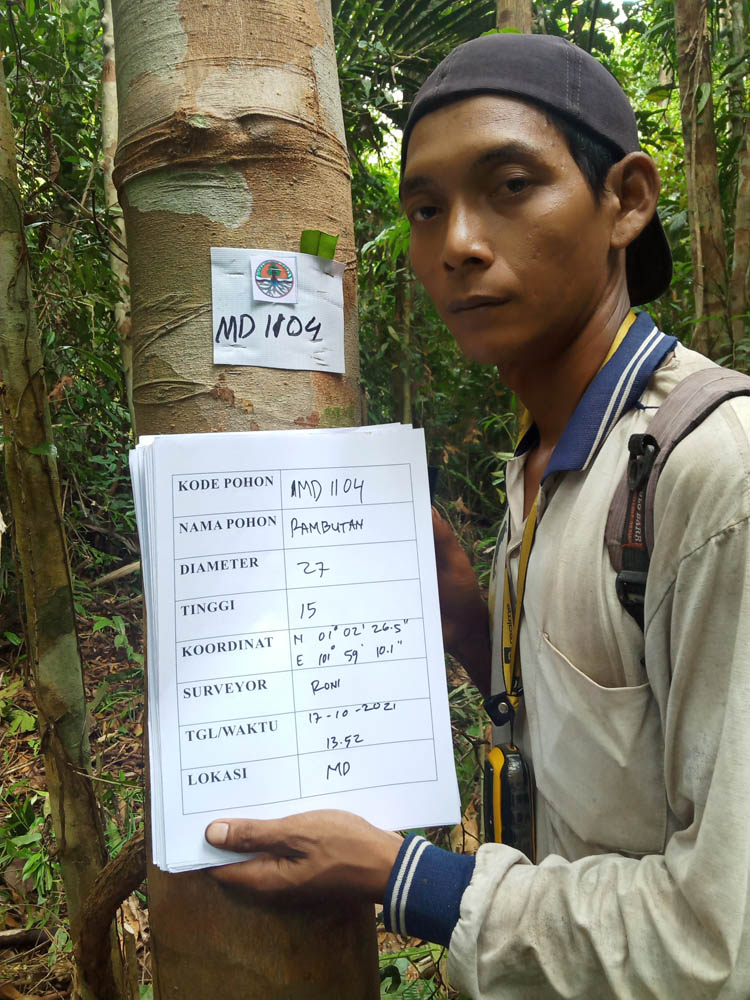 MD 1104
KODE POHON MD 1104
NAMA POHON RAMBUTAN
DIAMETER 27
TINGGI 15
KOORDINAT N 01° 02' 26.5"
E 101° 59' 10.1"
SURVEYOR RONI
TGL/WAKTU 17-10-2021
13.52
LOKASI MD
realme